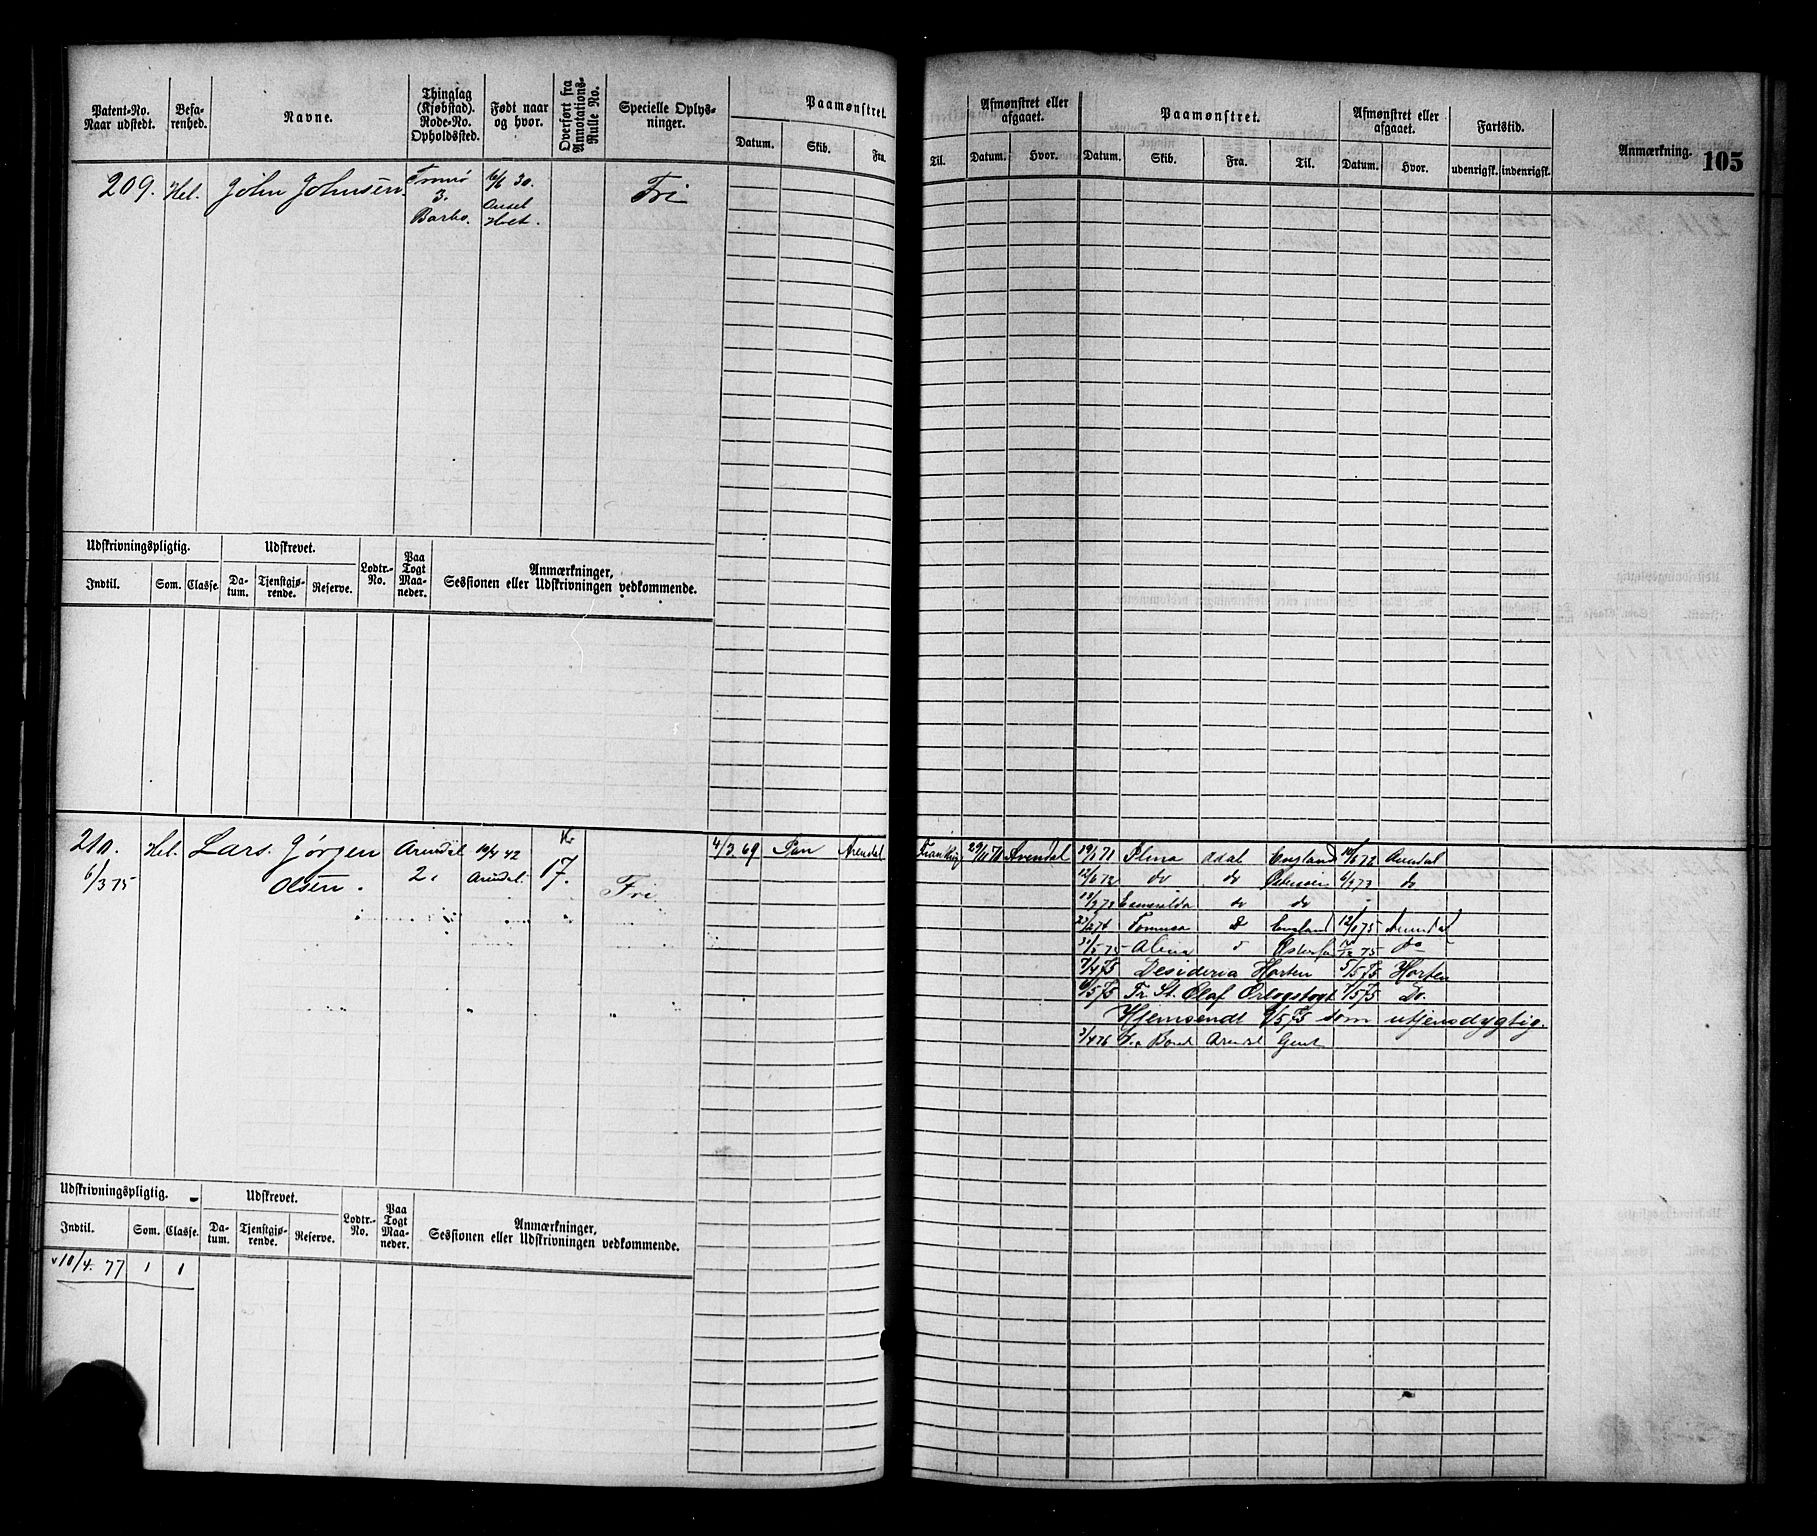 Patent-No. Naar udstedt.
Befarenhed.
Navne.
Thinglag (Kjøbstad). Rode-No. Opholdssted.
Født naar og hvor.
Overført fra Annotations-Rulle No.
Specielle Oplysninger.
Paamønstret
Datum. Skib. Fra.
Til.
Afmønstret eller afgaaet.
Datum. Hvor.
Paamønstret.
Datum. Skib. Fra. Til.
Afmønstret eller afgaaet.
Datum. Hvor.
Fartstid.
udenrigsk. indenrigsk.
Anmærkning.
105
209. Hel. John Johnsen Tromø 6/6 30. Fri
3.
Barbo.
Udskrivningspligtig. Udskrevet. Lodtr.-No. Paa Togt Maaneder. Anmærkninger, Sessionen eller Udskrivningen vedkommende.
Indtil. Som. Classe. Datum. Tjenstgjørende. Reserve.
210. Hel. Lars Jørgen Arendal 10/4 42 17. 4/3 69 Pan Arendal
6/3 75 Olsen. 2. Arendal. Fri
Arendal 19/ 71 England 72 Arendal
12/6 72 do do 73 do
Esmeralda do do
England 12/ 75 Arendal
75 do
7/4 75 Desideria Horten 5/5 75 Horten
6/5 75 Fr. St. Olaf Orlogstogt 7/5 75 Do.
Hjemsendt 9/5 75 som utjensdygtig.
3/4 76 Arendal Gent
Udskrivningspligtig. Udskrevet. Lodtr.-No. Paa Togt Maaneder. Anmærkninger, Sessionen eller Udskrivningen vedkommende.
Indtil. Som. Classe. Datum. Tjenstgjørende. Reserve.
10/4. 77 1 1